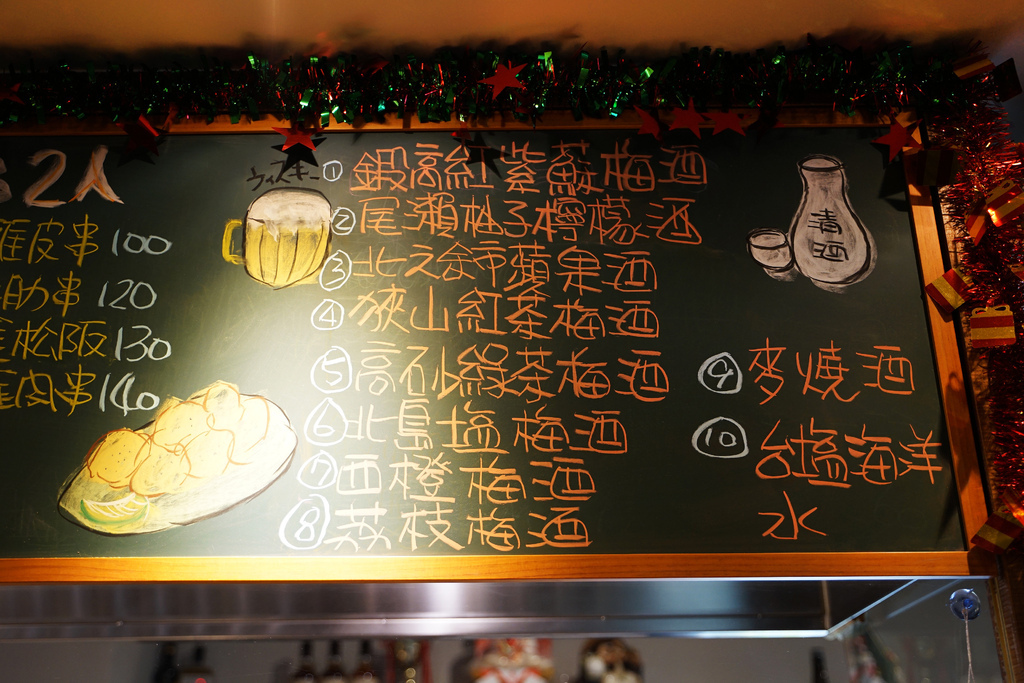 2人
皮串 100
肋串 120
松阪 130
肉串 140
ウィスキー
① 鍛高紅紫蘇梅酒
② 尾瀨柚子檸檬酒
③ 北之余市蘋果酒
④ 狹山紅茶梅酒
⑤ 高砂綠茶梅酒
⑥ 北島塩梅酒
⑦ 西橙梅酒
⑧ 荔枝梅酒
清酒
⑨ 麥燒酒
⑩ 台塩海洋
水